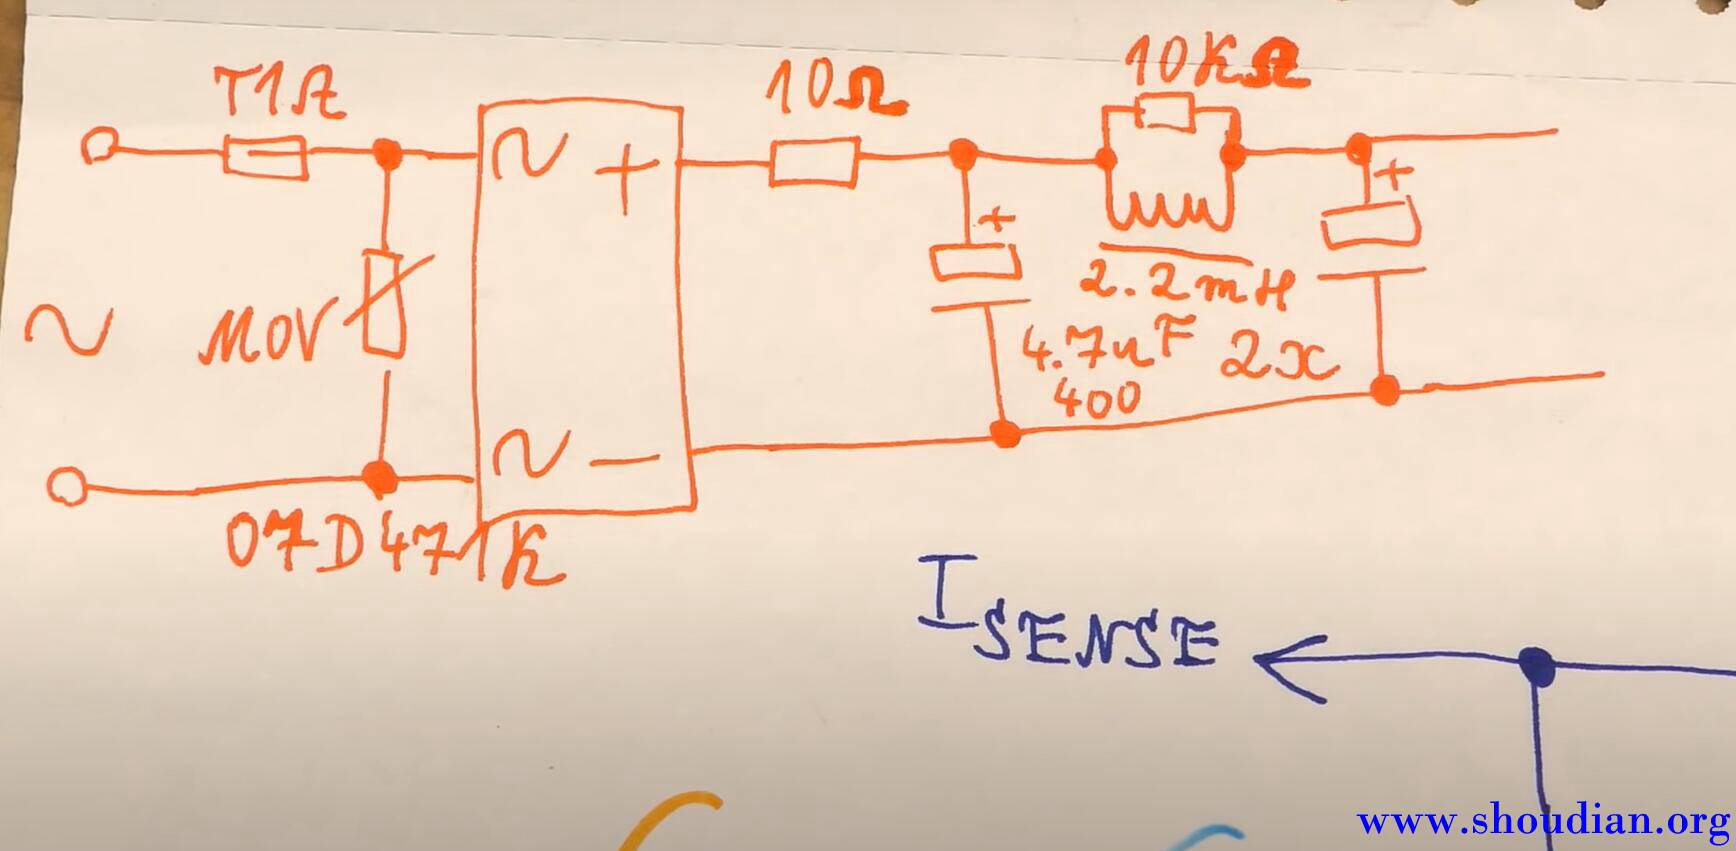 T1A
10Ω
10KΩ
∿ +
+
+
2.2mH
∿
MOV
4.7uF 2x
400
∿ −
07D471K
ISENSE
www.shoudian.org